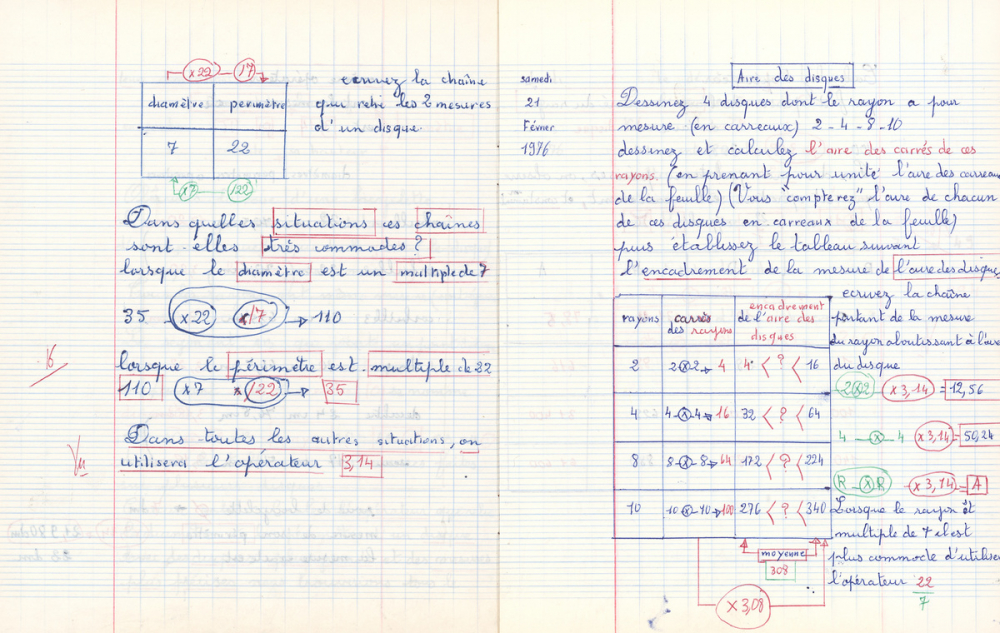 x22 17
diamètre périmètre
7 22
x7 122
ecrivez la chaîne
qui relie les 2 mesures
d'un disque.
Dans quelles situations ces chaînes
sont-elles très commodes?
lorsque le diamètre est un multiple de 7
35 x22 17 → 110
16
lorsque le périmètre est multiple de 22
110 x7 122 → 35
Vu
Dans toutes les autres situations, on
utilisera l'opérateur 3,14
samedi
21
Février
1976
Aire des disques
Dessinez 4 disques dont le rayon a pour
mesure (en carreaux) 2 - 4 - 8 - 10
dessinez et calculez l'aire des carrés de ces
rayons. (en prenant pour unité l'aire des carreaux
de la feuille) (Vous "compterez" l'aire de chacun
de ces disques en carreaux de la feuille)
puis établissez le tableau suivant
l'encadrement de la mesure de l'aire des disques
rayons carrés des rayons encadrement de l'aire des disques
2 2 x 2 → 4 4 < ? < 16
4 4 x 4 → 16 32 < ? < 64
8 8 x 8 → 64 172 < ? < 224
10 10 x 10 → 100 276 < ? < 340
moyenne
308
x 3,08
ecrivez la chaîne
partant de la mesure
du rayon aboutissant à l'aire
du disque
2 x 2 x 3,14 = 12,56
4 x 4 x 3,14 = 50,24
R x R x 3,14 = A
Lorsque le rayon est
multiple de 7 il est
plus commode d'utiliser
l'opérateur 22
7